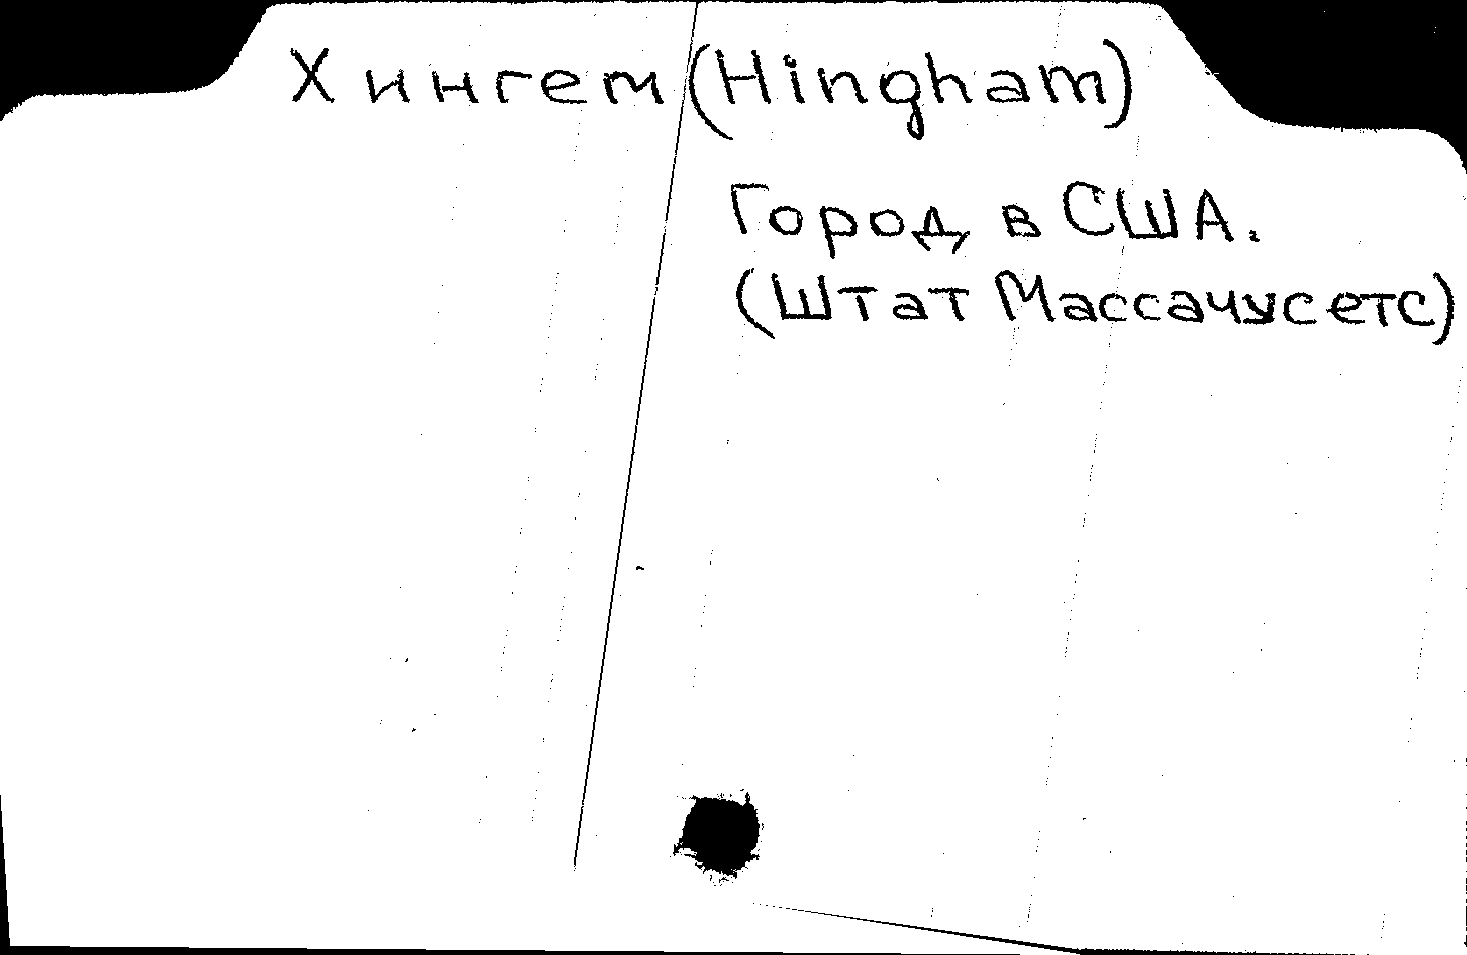 Хингем (Hingham)
Город в США.
(Штат Массачусетс)